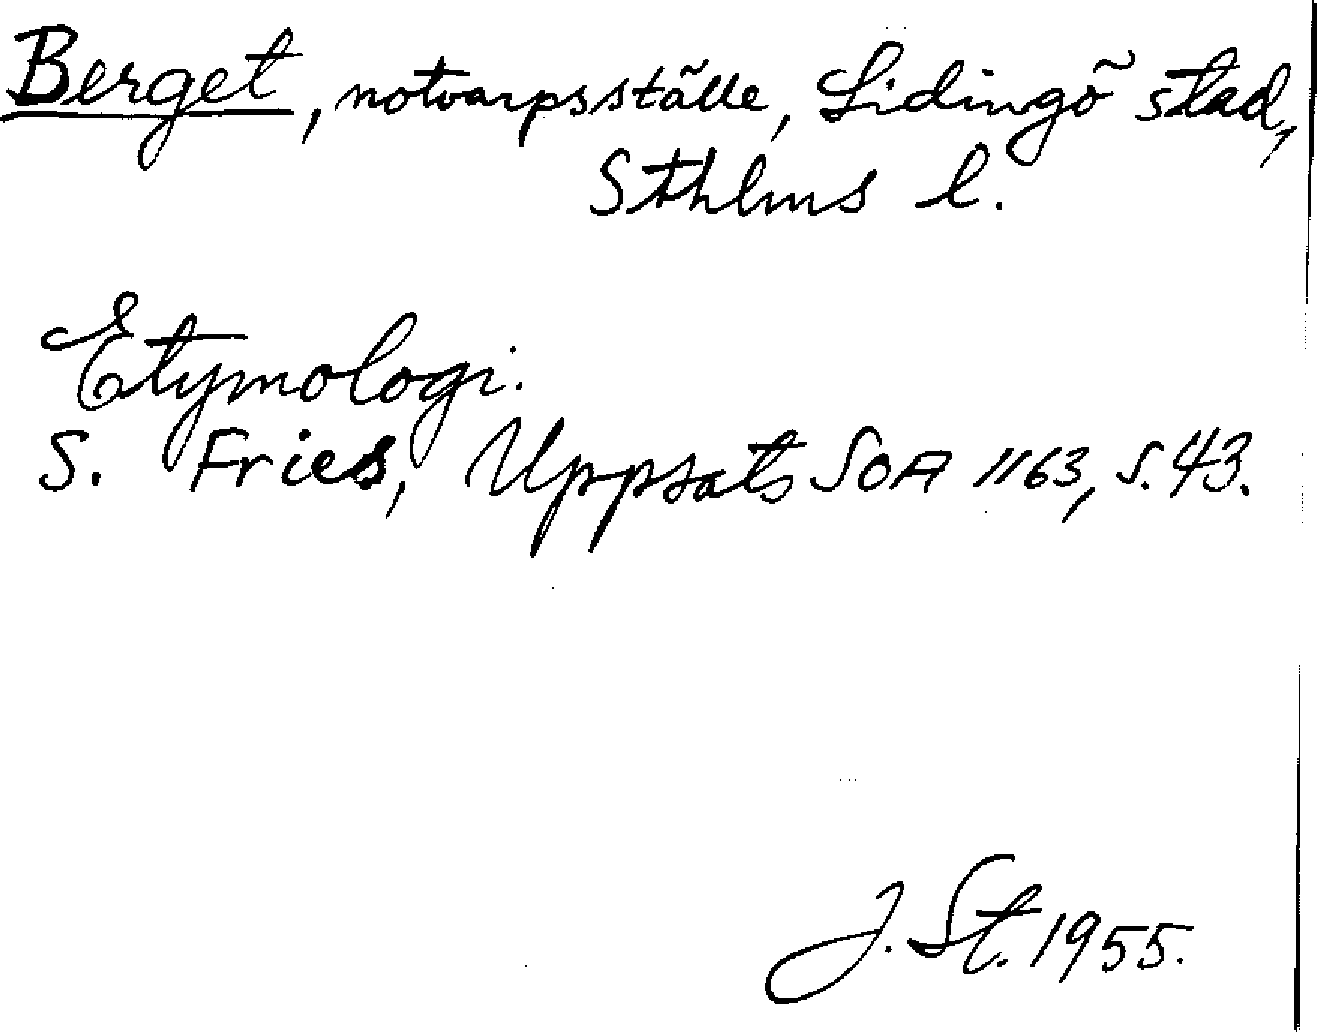 Berget, notvarpsställe, Lidingö stad,
Sthlms l.
Etymologi.
S. Fries, Uppsats SOA 1163, s. 43.
J. St. 1955.